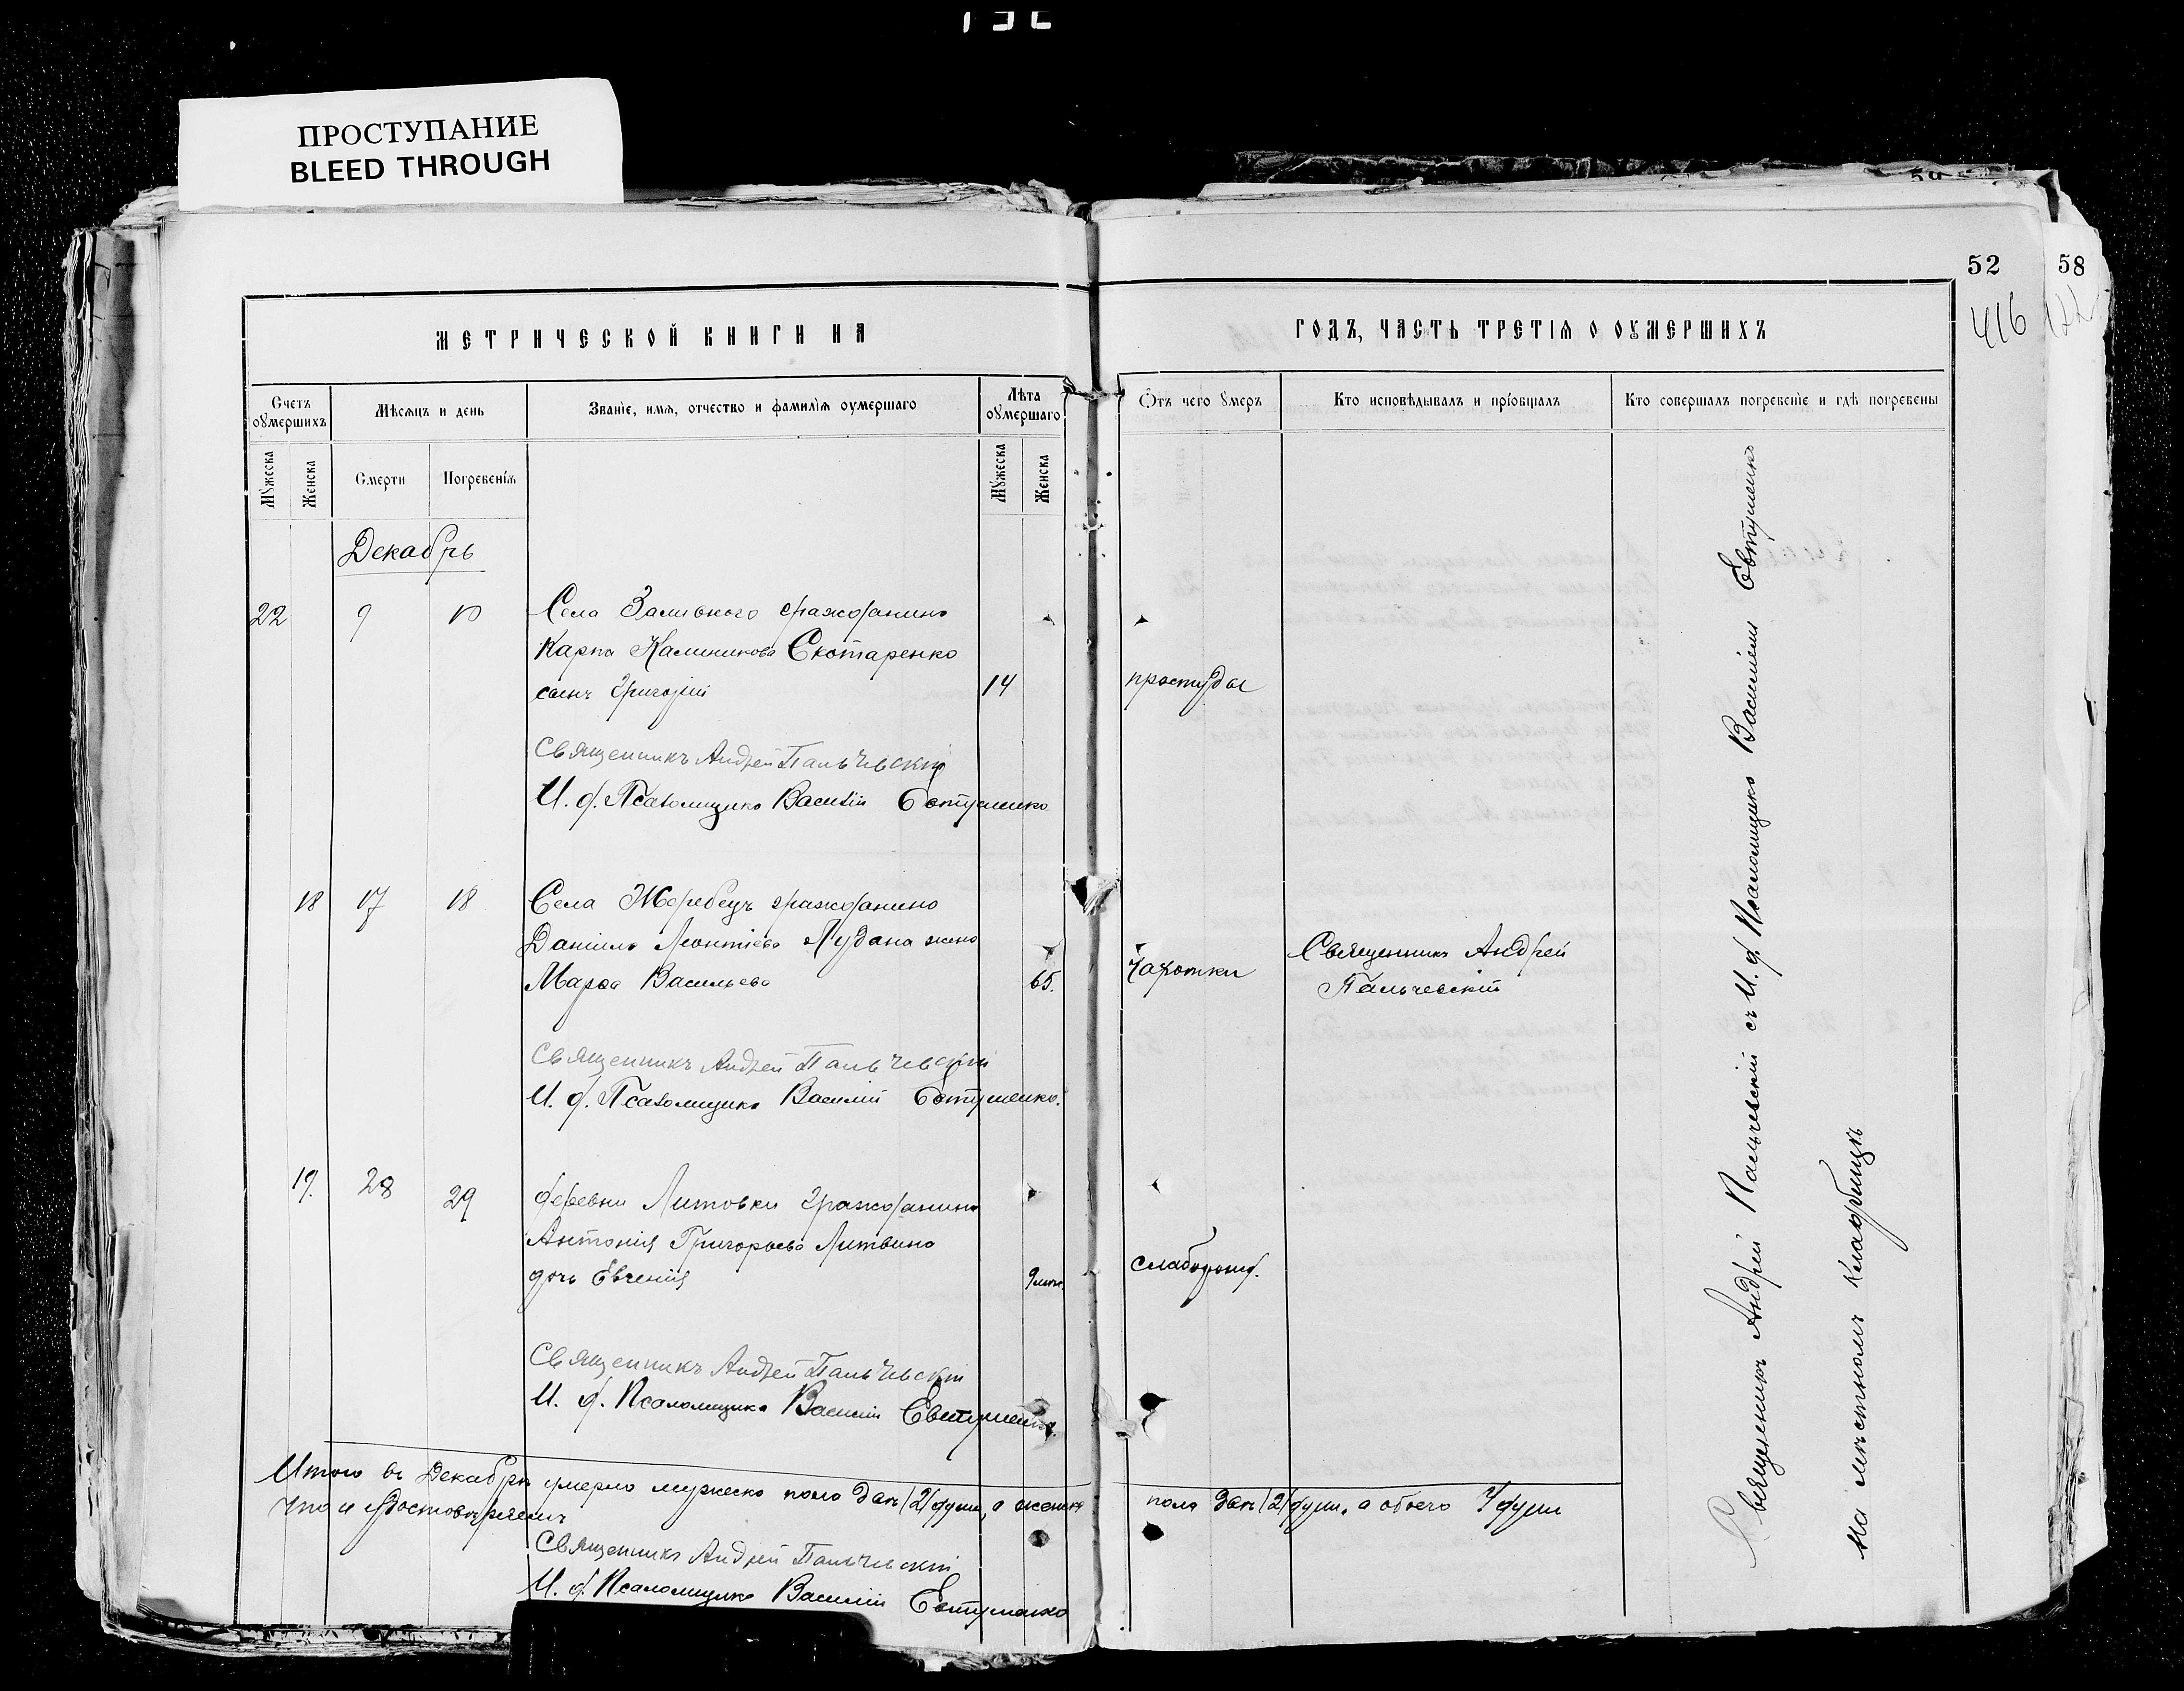 ПРОСТУПАНИЕ
BLEED THROUGH
52
58
416
МЕТРИЧЕСКОЙ КНИГИ НА
ГОДЪ, ЧАСТЬ ТРЕТІѦ О ОУМЕРШИХЪ
Счетъ оумершихъ
Мѣсѧцъ и день
Званіе, имѧ, отчество и фамиліѧ оумершаго
Лѣта оумершаго
Ѿтъ чего умеръ
Кто исповѣдывалъ и пріобщалъ
Кто совершалъ погребеніе и гдѣ погребены
Мужеска
Женска
Смерти
Погребеніѧ
Мужеска
Женска
Декабрь
22 9 10 Села Заливного гражданина
Карпа Калиникова Скотаренко
сынъ Григорій 14 простуды
Священникъ Андрей Пальчевскій
И. д. Псаломщика Василій Евтушенко
18 17 18 Села Жеребецъ гражданина
Даніила Леонтіева Лудана жена
Марѳа Васильева 65. чахотки
Священникъ Андрей
Пальчевскій
Священникъ Андрей Пальчевскій
И. д. Псаломщика Василій Евтушенко.
19. 28 29 деревни Литовки гражданина
Антонія Григорьева Литвина
дочь Евгенія 9 мѣс. слаборожд.
Священникъ Андрей Пальчевскій
И. д. Псаломщика Василій Евтушенко.
Итого въ Декабрѣ умерло мужеска пола двѣ /2/ души, а женска пола двѣ /2/ души, а обоего 4 души
что и удостовѣряемъ
Священникъ Андрей Пальчевскій
И. д. Псаломщика Василій Евтушенко
Священникъ Андрей Пальчевскій съ И. д. Псаломщика Василіемъ Евтушенко
на мѣстномъ кладбищѣ